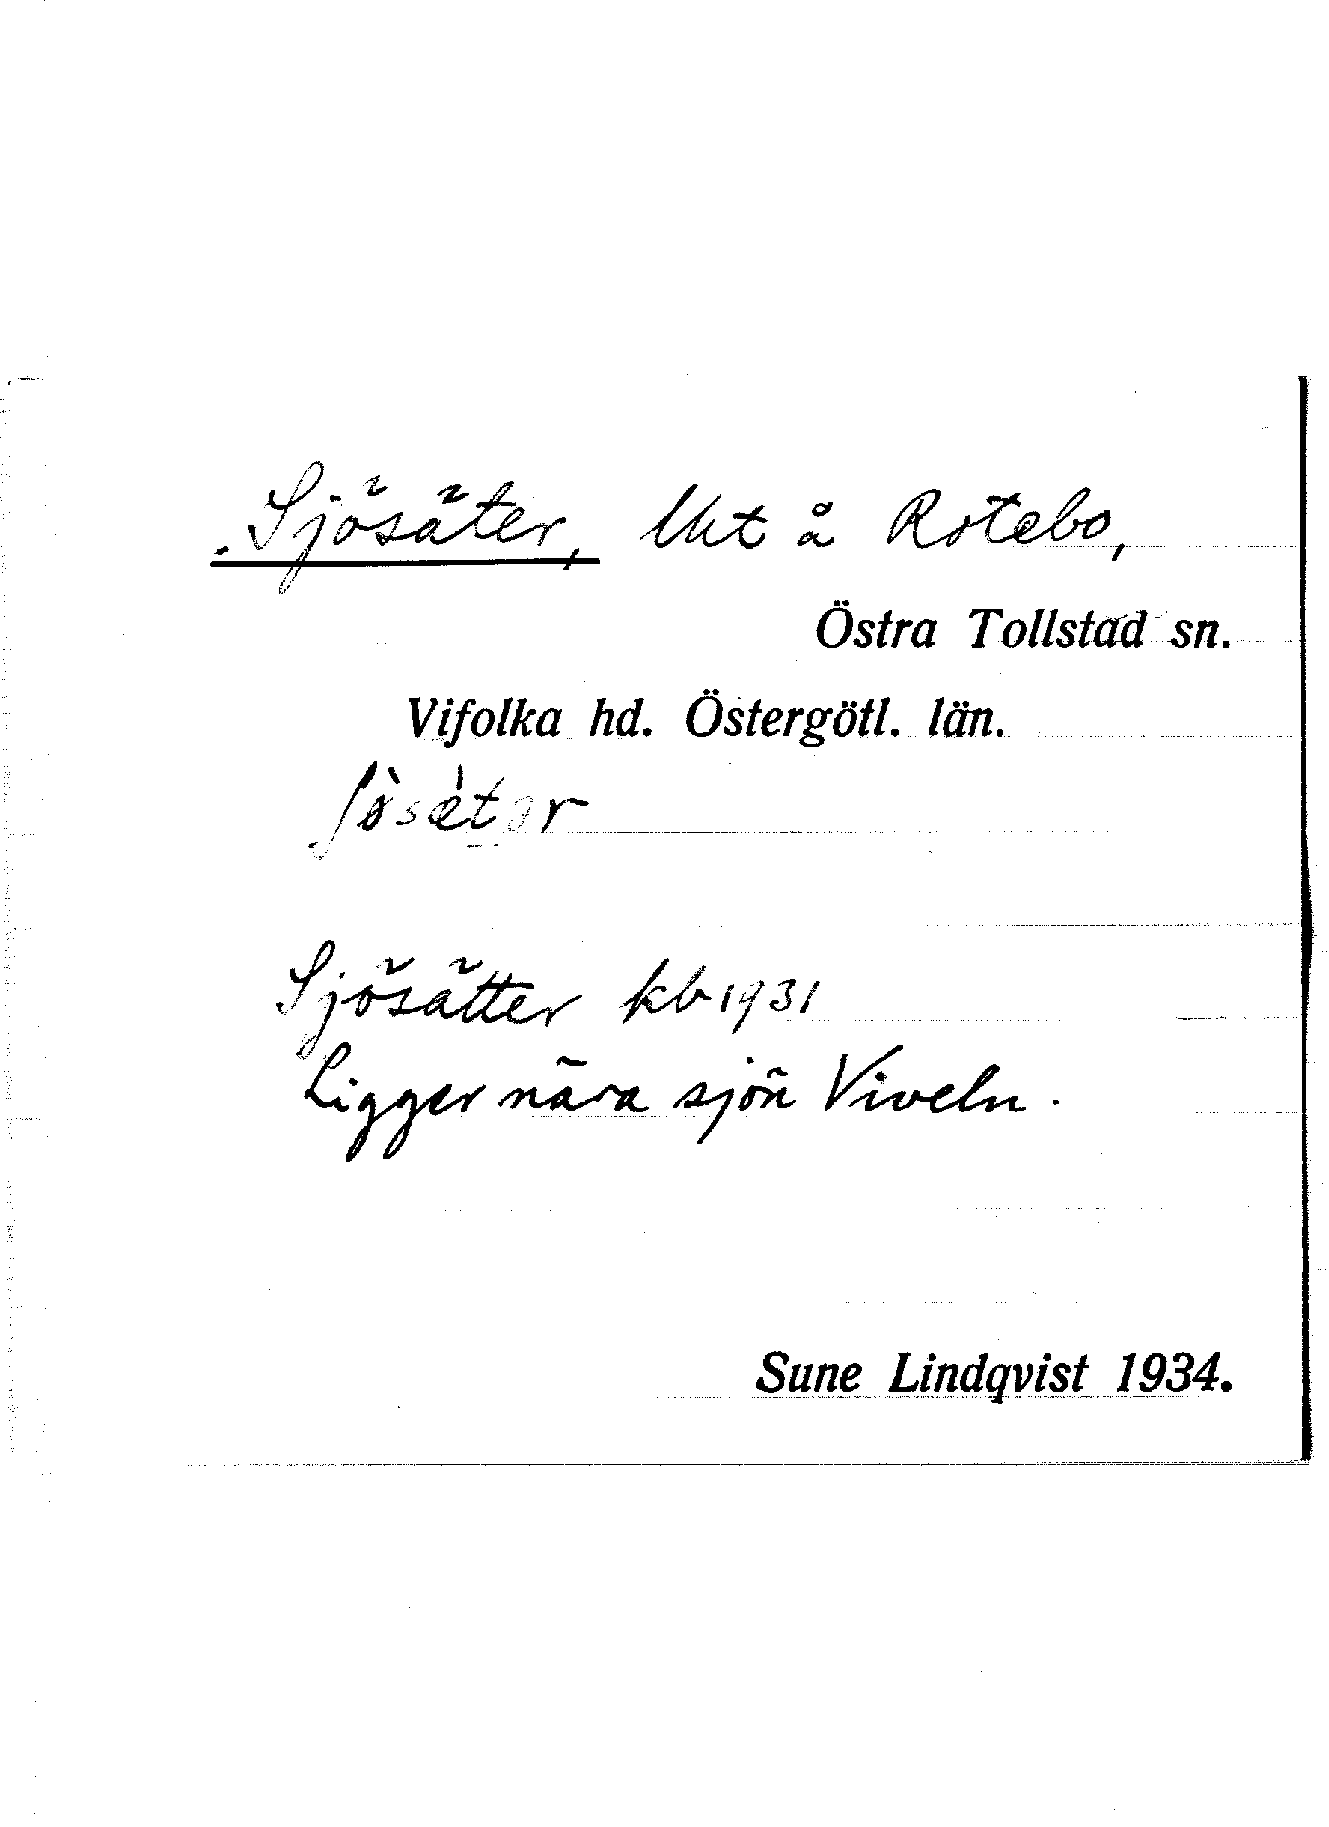 Sjösäter, lht å Rotebo,
Östra Tollstad sn.
Vifolka hd. Östergötl. län.
ʃø̀sæ̀tər
Sjösätter kb 1931
Ligger nära sjön Viveln.
Sune Lindqvist 1934.